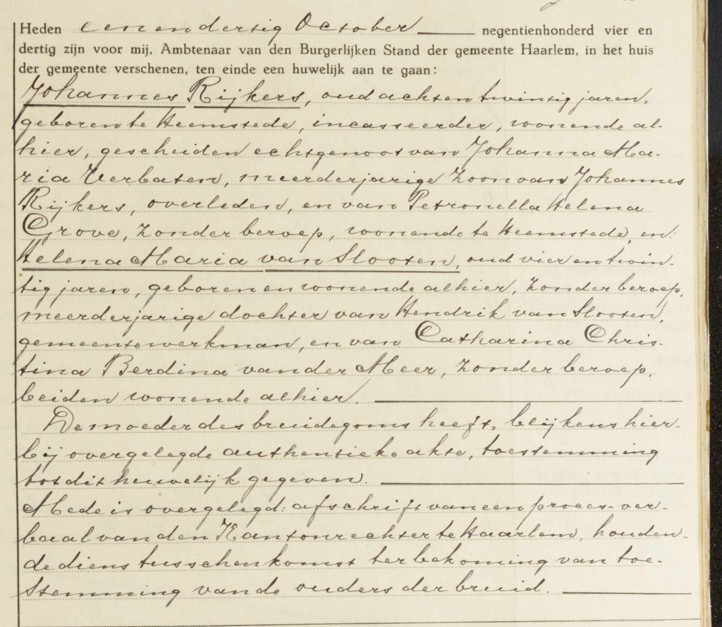 Heden eenendertig October negentienhonderd vier en
dertig zijn voor mij, Ambtenaar van den Burgerlijken Stand der gemeente Haarlem, in het huis
der gemeente verschenen, ten einde een huwelijk aan te gaan:
Johannes Rijkers, oud achtentwintig jaren,
geboren te Heemstede, incasseerder, wonende al-
hier, gescheiden echtgenoot van Johanna Ma-
ria Verbaten, meerderjarige zoon van Johannes
Rijkers, overleden, en van Petronella Helena
Grove, zonder beroep, wonende te Heemstede, en
Helena Maria van Slooten, oud vierentwin-
tig jaren, geboren en wonende alhier, zonder beroep,
meerderjarige dochter van Hendrik van Slooten,
gemeentewerkman, en van Catharina Chris-
tina Berdina van der Meer, zonder beroep,
beiden wonende alhier.
De moeder des bruidegoms heeft, blijkens hier-
bij overgelegde authentieke akte, toestemming
tot dit huwelijk gegeven.
Mede is overgelegd: afschrift van een proces-ver-
baal van den Kantonrechter te Haarlem, houden-
de diens tusschenkomst ter bekoming van toe-
stemming van de ouders der bruid.